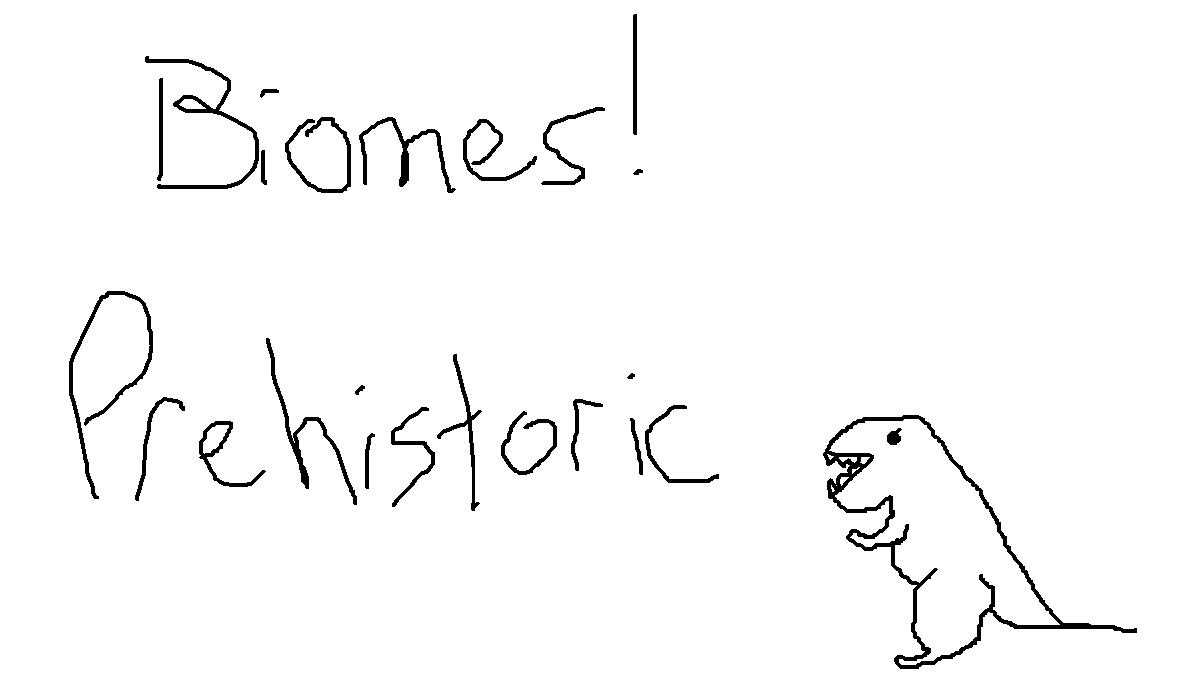 Biomes!
Prehistoric